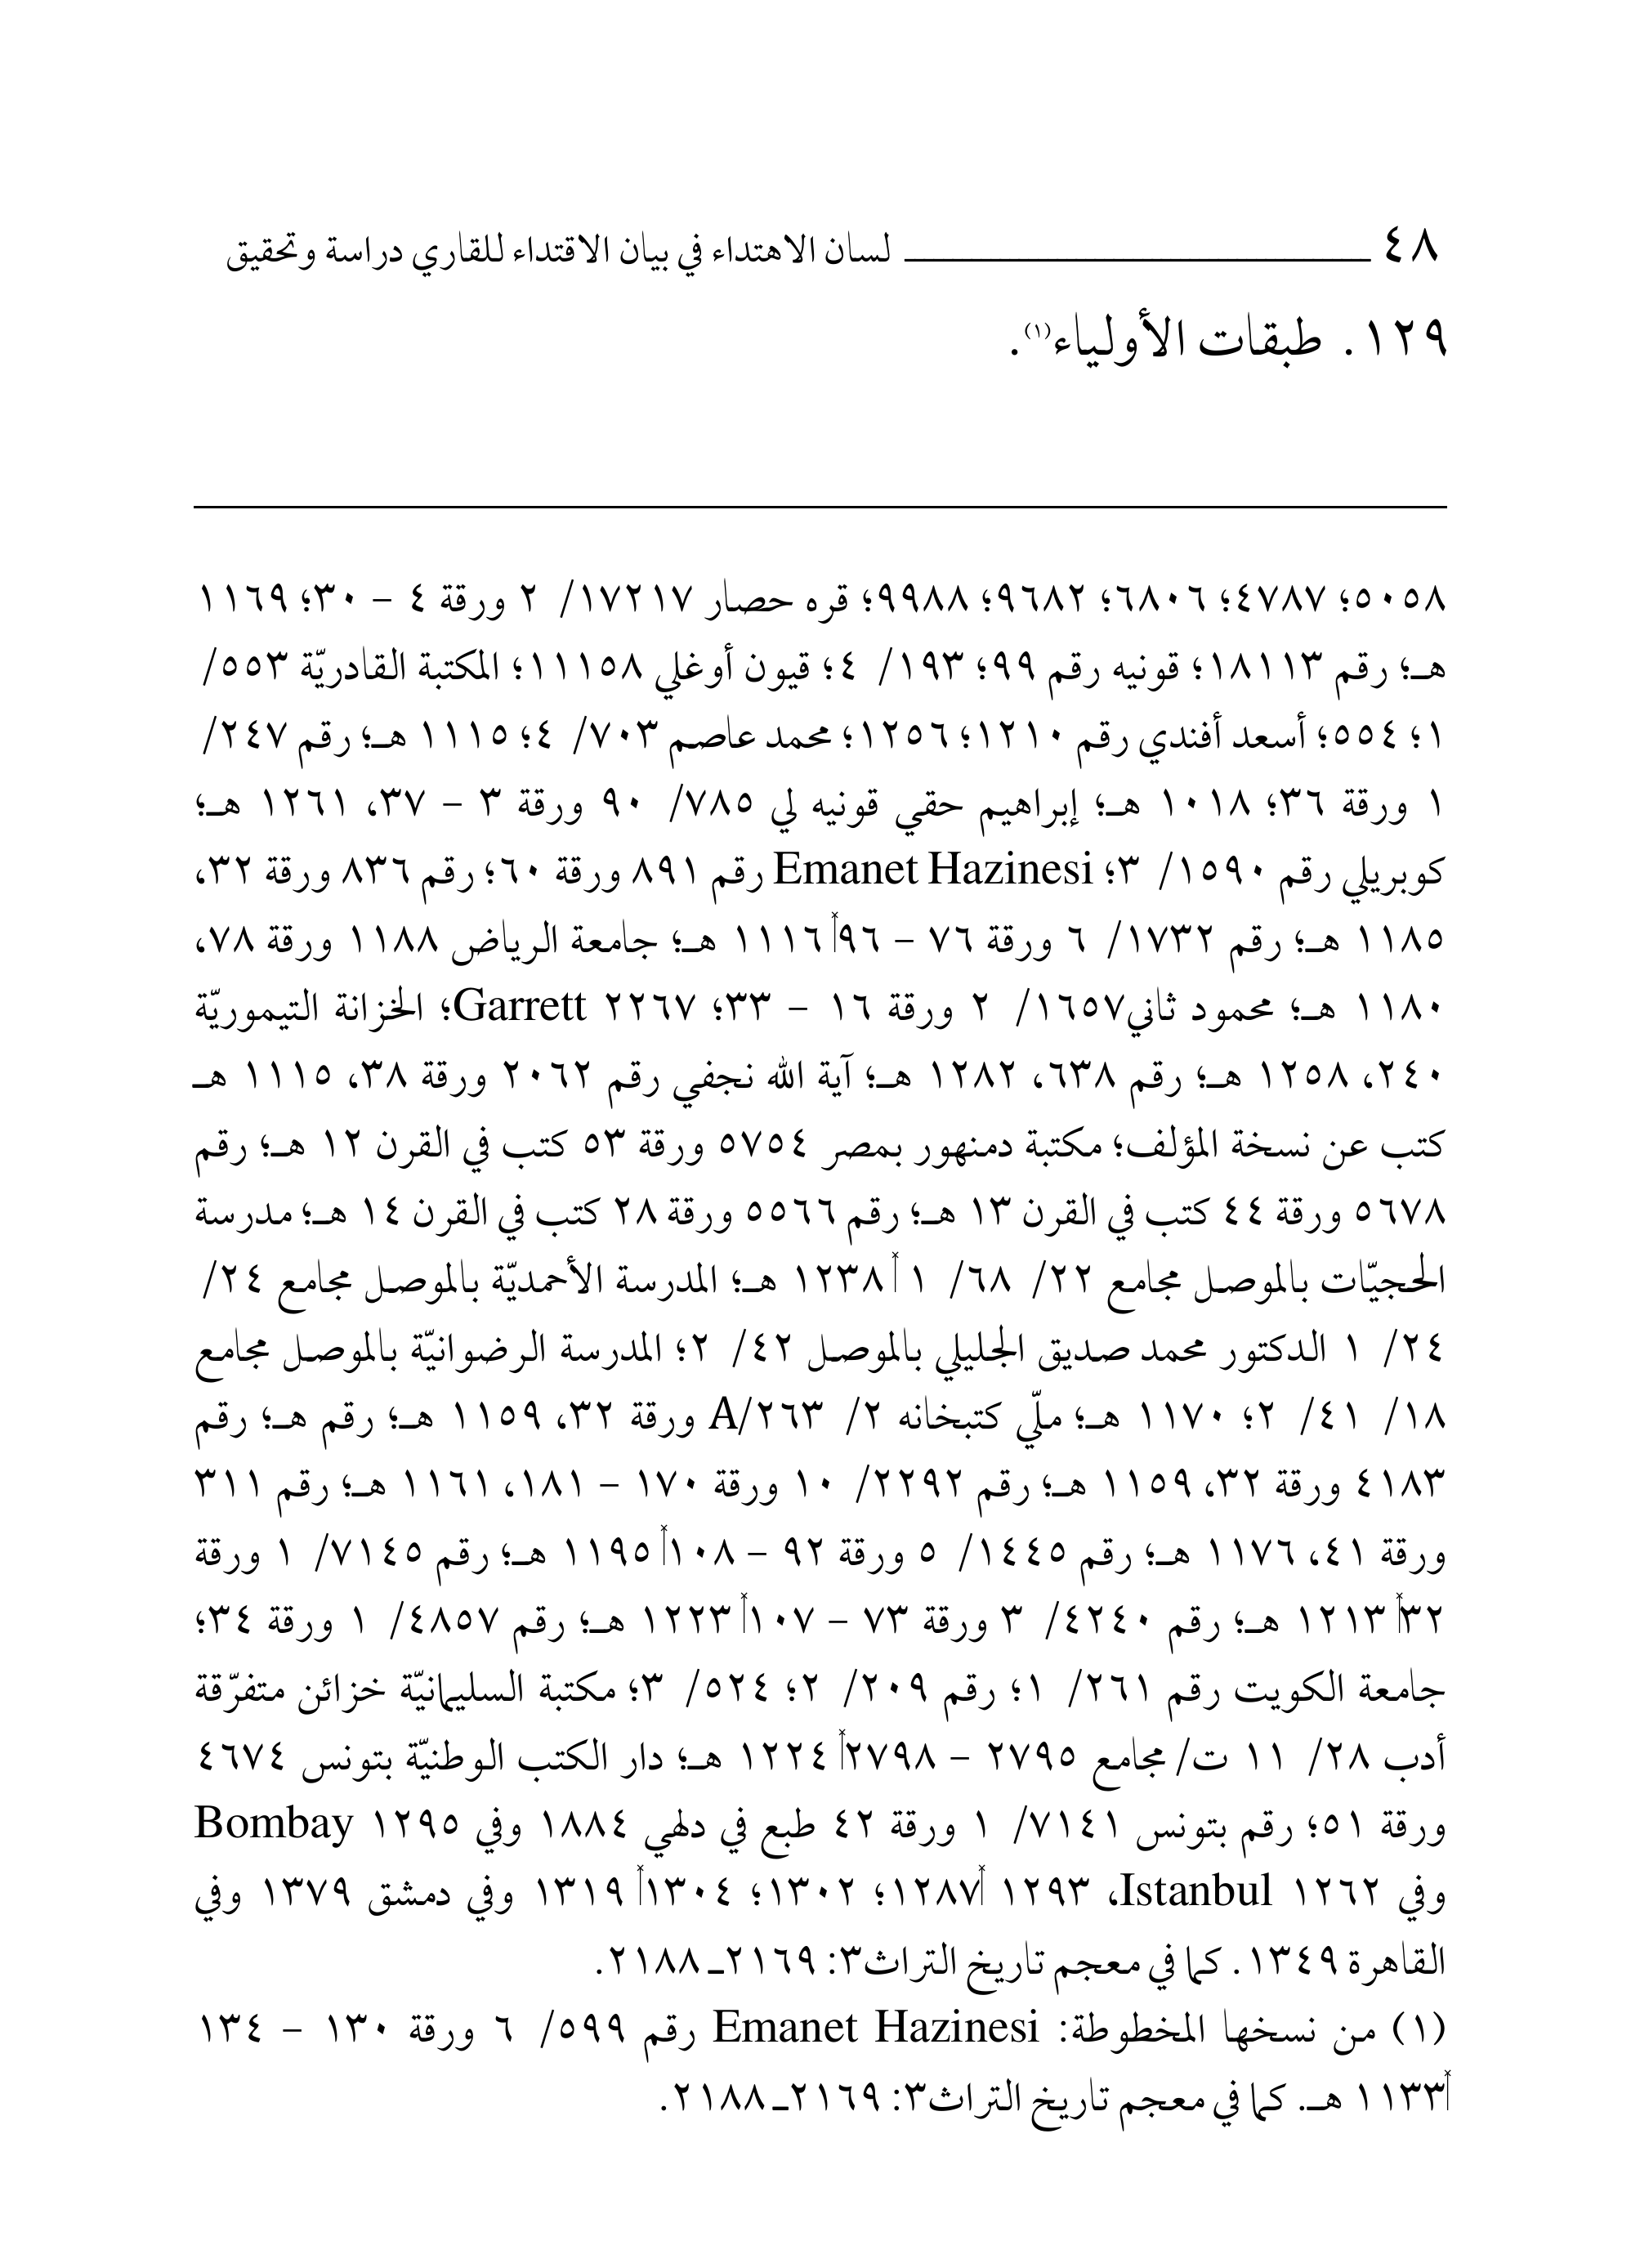 ٤٨ ــــــــــــــــــــــــــــــــــــ لسان الاهتداء في بيان الاقتداء للقاري دراسة وتحقيق
١٢٩. طبقات الأولياء(١).
٥٠٥٨؛ ٤٧٨٧؛ ٦٨٠٦؛ ٩٦٨٢؛ ٩٩٨٨؛ قره حصار ١٧٢١٧/ ٢ ورقة ٤ – ٣٠؛ ١١٦٩
هـ؛ رقم ١٨١١٣؛ قونيه رقم ٩٩؛ ١٩٣/ ٤؛ قيون أوغلي ١١١٥٨؛ المكتبة القادريّة ٥٥٣/
١؛ ٥٥٤؛ أسعد أفندي رقم ١٢١٠؛ ١٢٥٦؛ محمد عاصم ٧٠٣/ ٤؛ ١١١٥ هـ؛ رقم ٢٤٧/
١ ورقة ٣٦؛ ١٠١٨ هـ؛ إبراهيم حقي قونيه لي ٧٨٥/ ٩٠ ورقة ٣ – ٣٧، ١٢٦١ هـ؛
كوبريلي رقم ١٥٩٠/ ٣؛ Emanet Hazinesi رقم ٨٩١ ورقة ٦٠؛ رقم ٨٣٦ ورقة ٣٢،
١١٨٥ هـ؛ رقم ١٧٣٢/ ٦ ورقة ٧٦ – ٩٦ ١١١٦ هـ؛ جامعة الرياض ١١٨٨ ورقة ٧٨،
١١٨٠ هـ؛ محمود ثاني١٦٥٧/ ٢ ورقة ١٦ – ٣٣؛ Garrett ٢٢٦٧؛ الخزانة التيموريّة
٢٤٠، ١٢٥٨ هـ؛ رقم ٦٣٨، ١٢٨٢ هـ؛ آية الله نجفي رقم ٢٠٦٢ ورقة ٣٨، ١١١٥ هـ
كتب عن نسخة المؤلف؛ مكتبة دمنهور بمصر ٥٧٥٤ ورقة ٥٣ كتب في القرن ١٢ هـ؛ رقم
٥٦٧٨ ورقة ٤٤ كتب في القرن ١٣ هـ؛ رقم ٥٥٦٦ ورقة ٢٨ كتب في القرن ١٤ هـ؛ مدرسة
الحجيّات بالموصل مجامع ٢٢/ ٦٨/ ١ ١٢٣٨ هـ؛ المدرسة الأحمديّة بالموصل مجامع ٢٤/
٢٤/ ١ الدكتور محمد صديق الجليلي بالموصل ٤٢/ ٢؛ المدرسة الرضوانيّة بالموصل مجامع
١٨/ ٤١/ ٢؛ ١١٧٠ هـ؛ ملّي كتبخانه ٢/ ٢٦٣/A ورقة ٣٢، ١١٥٩ هـ؛ رقم هـ؛ رقم
٤١٨٣ ورقة ٣٢، ١١٥٩ هـ؛ رقم ٢٢٩٢/ ١٠ ورقة ١٧٠ – ١٨١، ١١٦١ هـ؛ رقم ٣١١
ورقة ٤١، ١١٧٦ هـ؛ رقم ١٤٤٥/ ٥ ورقة ٩٢ – ١٠٨ ١١٩٥ هـ؛ رقم ٧١٤٥/ ١ ورقة
٣٢ ١٢١٣ هـ؛ رقم ٤٢٤٠/ ٣ ورقة ٧٣ – ١٠٧ ١٢٢٣ هـ؛ رقم ٤٨٥٧/ ١ ورقة ٣٤؛
جامعة الكويت رقم ٢٦١/ ١؛ رقم ٢٠٩/ ٢؛ ٥٢٤/ ٣؛ مكتبة السليمانيّة خزائن متفرّقة
أدب ٢٨/ ١١ ت/ مجامع ٢٧٩٥ – ٢٧٩٨ ١٢٢٤ هـ؛ دار الكتب الوطنيّة بتونس ٤٦٧٤
ورقة ٥١؛ رقم بتونس ٧١٤١/ ١ ورقة ٤٢ طبع في دلهي ١٨٨٤ وفي Bombay ١٢٩٥
وفي Istanbul ١٢٦٢، ١٢٩٣ ١٢٨٧؛ ١٣٠٢؛ ١٣٠٤ ١٣١٩ وفي دمشق ١٣٧٩ وفي
القاهرة ١٣٤٩. كما في معجم تاريخ التراث٣: ٢١٦٩ـ ٢١٨٨.
(١) من نسخها المخطوطة: Emanet Hazinesi رقم ٥٩٩/ ٦ ورقة ١٣٠ – ١٣٤
١١٣٣ هـ. كما في معجم تاريخ التراث٣: ٢١٦٩ـ ٢١٨٨.